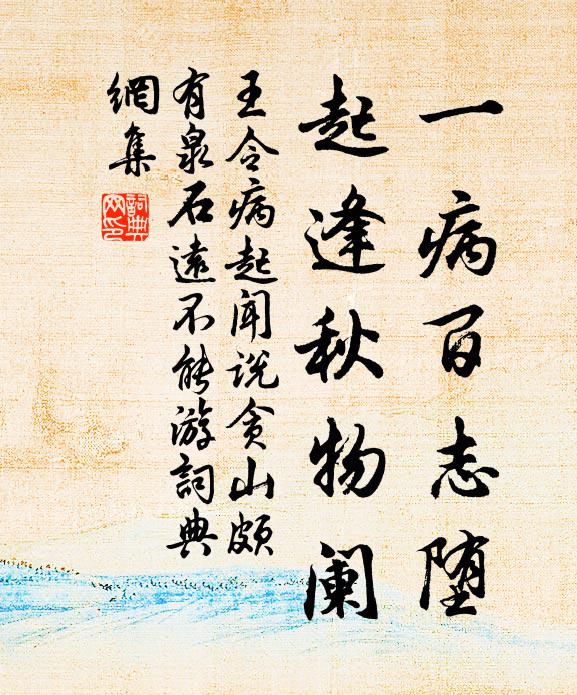 一病百志堕
起逢秋物阑
王令病起闻说贪山颇
有泉石遠不能游詞典
網集
詞典
网印